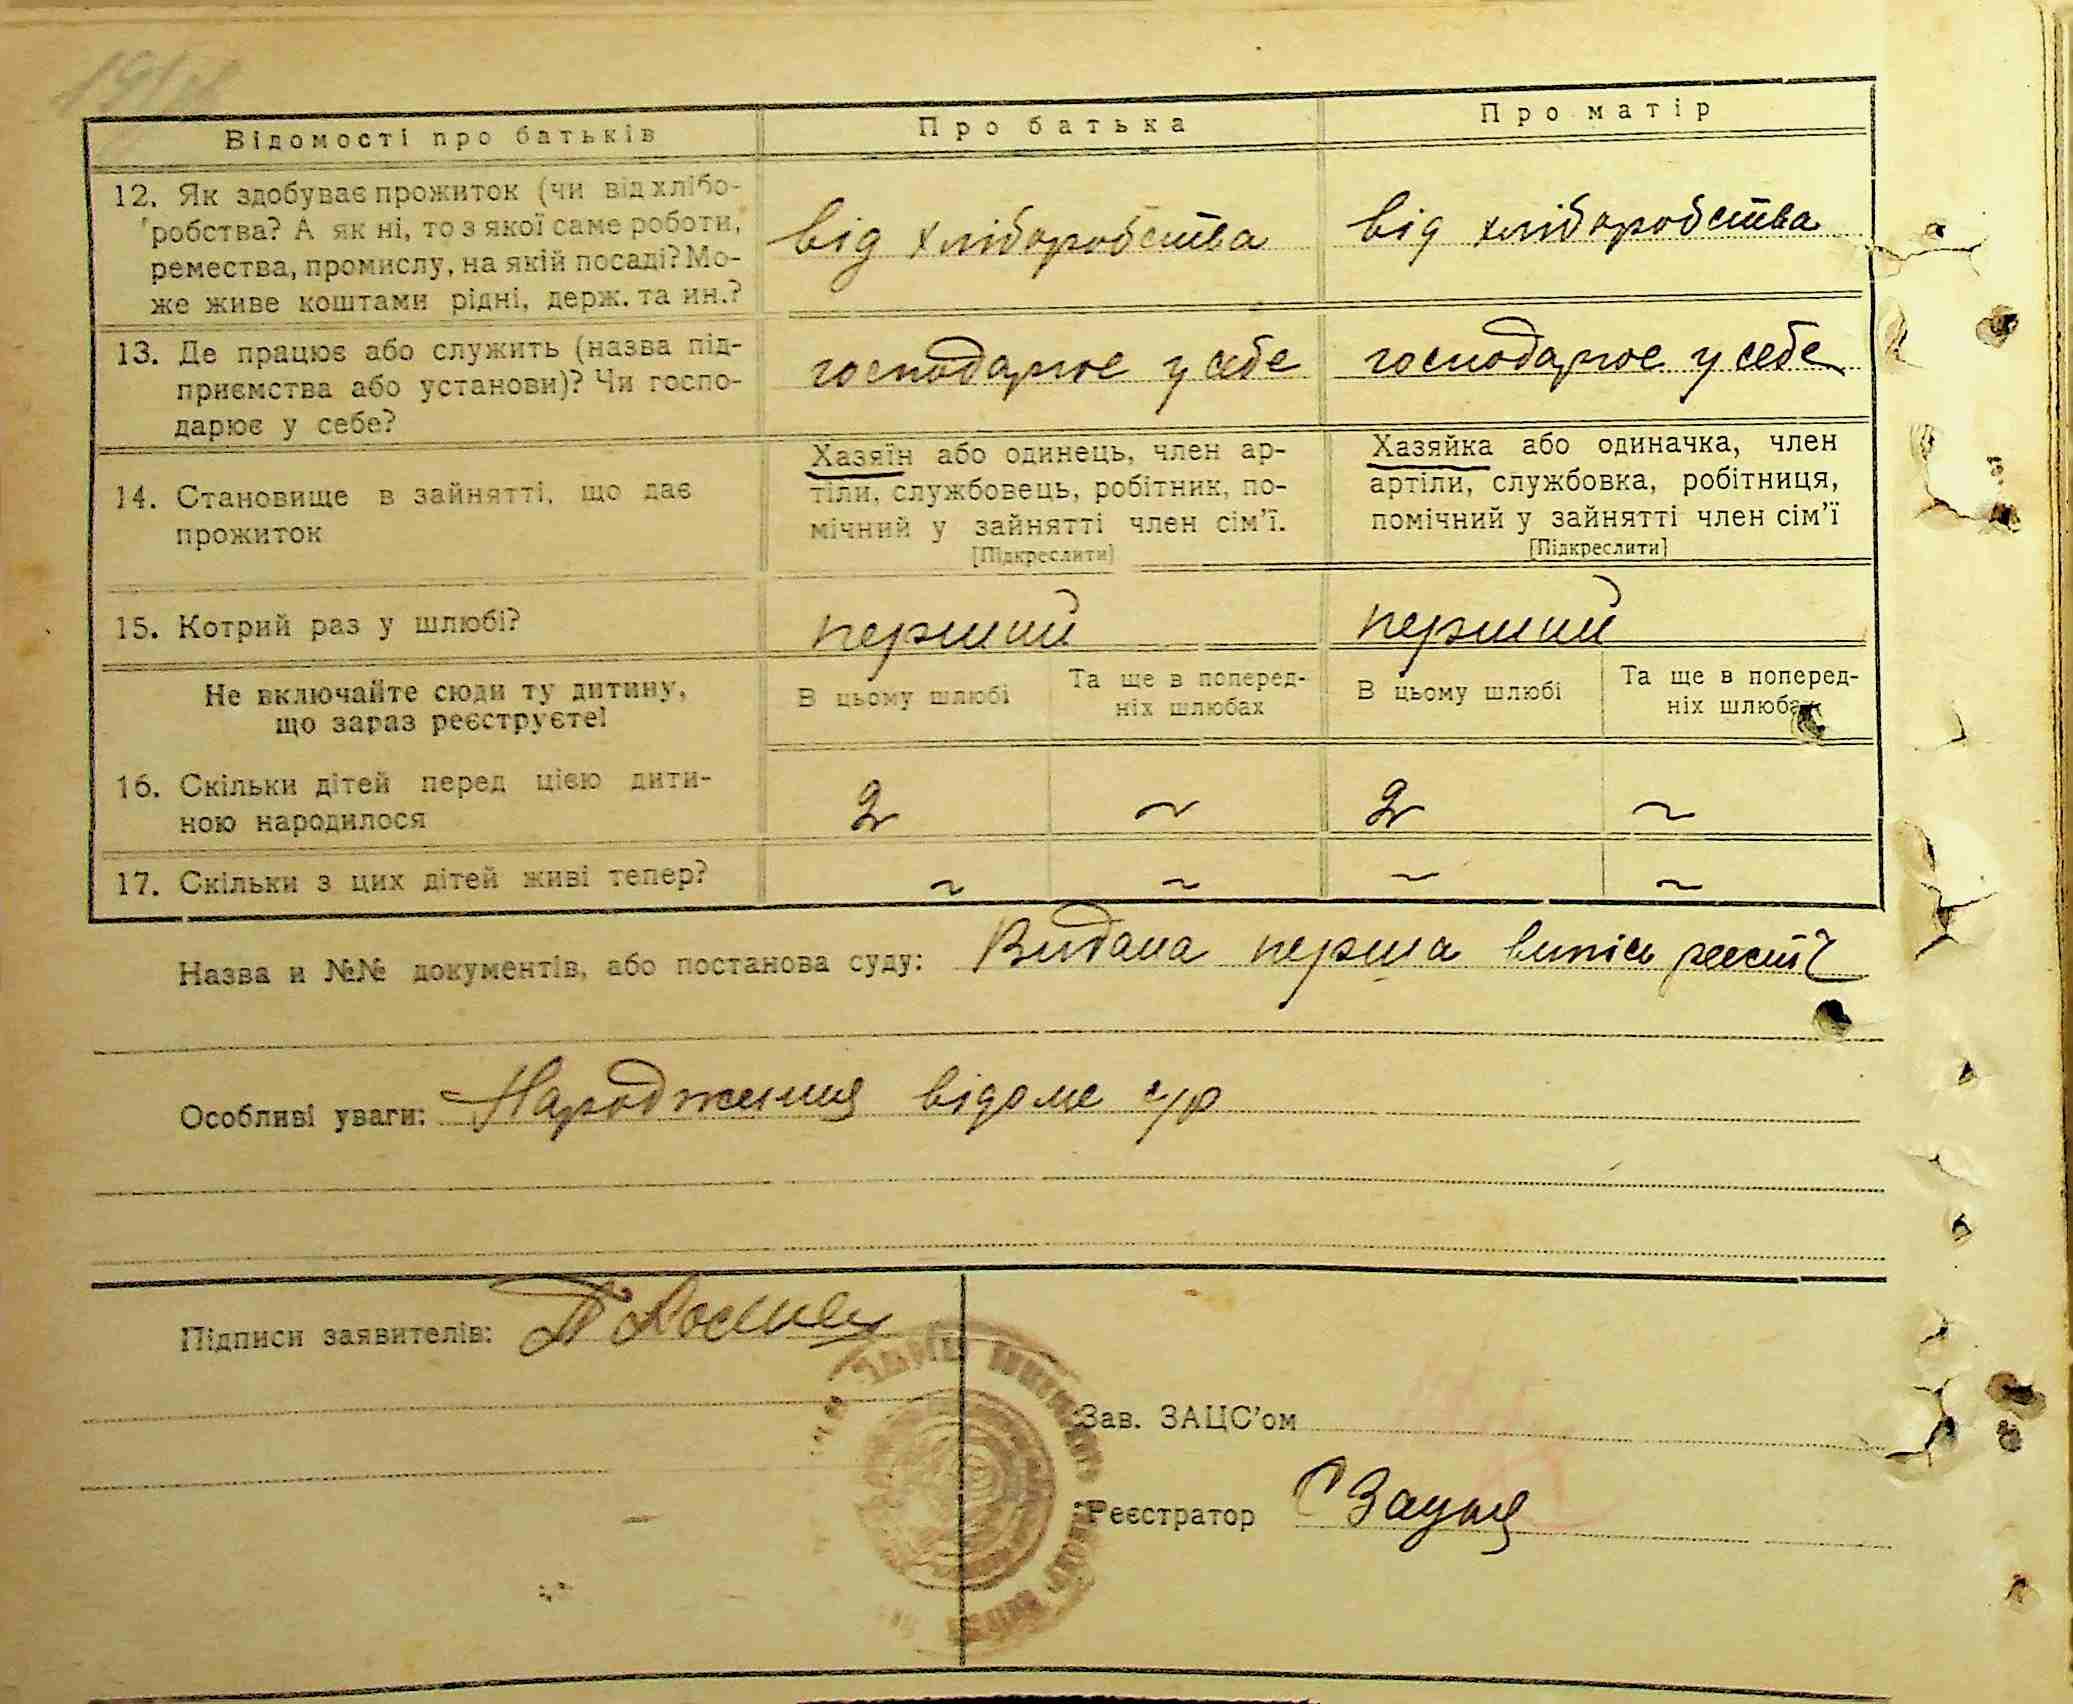 Відомості про батьків Про батька Про матір
12. Як здобуває прожиток (чи від хлібо-
робства? А як ні, то з якої саме роботи,
ремества, промислу, на якій посаді? Мо-
же живе коштами рідні, держ. та ин.?
від хліборобства від хліборобства
13. Де працює або служить (назва під-
приємства або установи)? Чи госпо-
дарює у себе?
господарює у себе господарює у себе
14. Становище в зайнятті, що дає
прожиток
Хазяїн або одинець, член ар-
тіли, службовець, робітник, по-
мічний у зайнятті член сім'ї.
[Підкреслити]
Хазяйка або одиначка, член
артіли, службовка, робітниця,
помічний у зайнятті член сім'ї
[Підкреслити]
15. Котрий раз у шлюбі? перший перший
Не включайте сюди ту дитину,
що зараз реєструєте!
В цьому шлюбі
Та ще в поперед-
ніх шлюбах
В цьому шлюбі
Та ще в поперед-
ніх шлюбах
16. Скільки дітей перед цією дити-
ною народилося
2 ~ 2 ~
17. Скільки з цих дітей живі тепер? ~ ~ ~ ~
Назва и №№ документів, або постанова суду: Видана перша випись
Особливі уваги: Народження відоме с/р
Підписи заявителів:
Зав. ЗАЦС'ом
Реєстратор